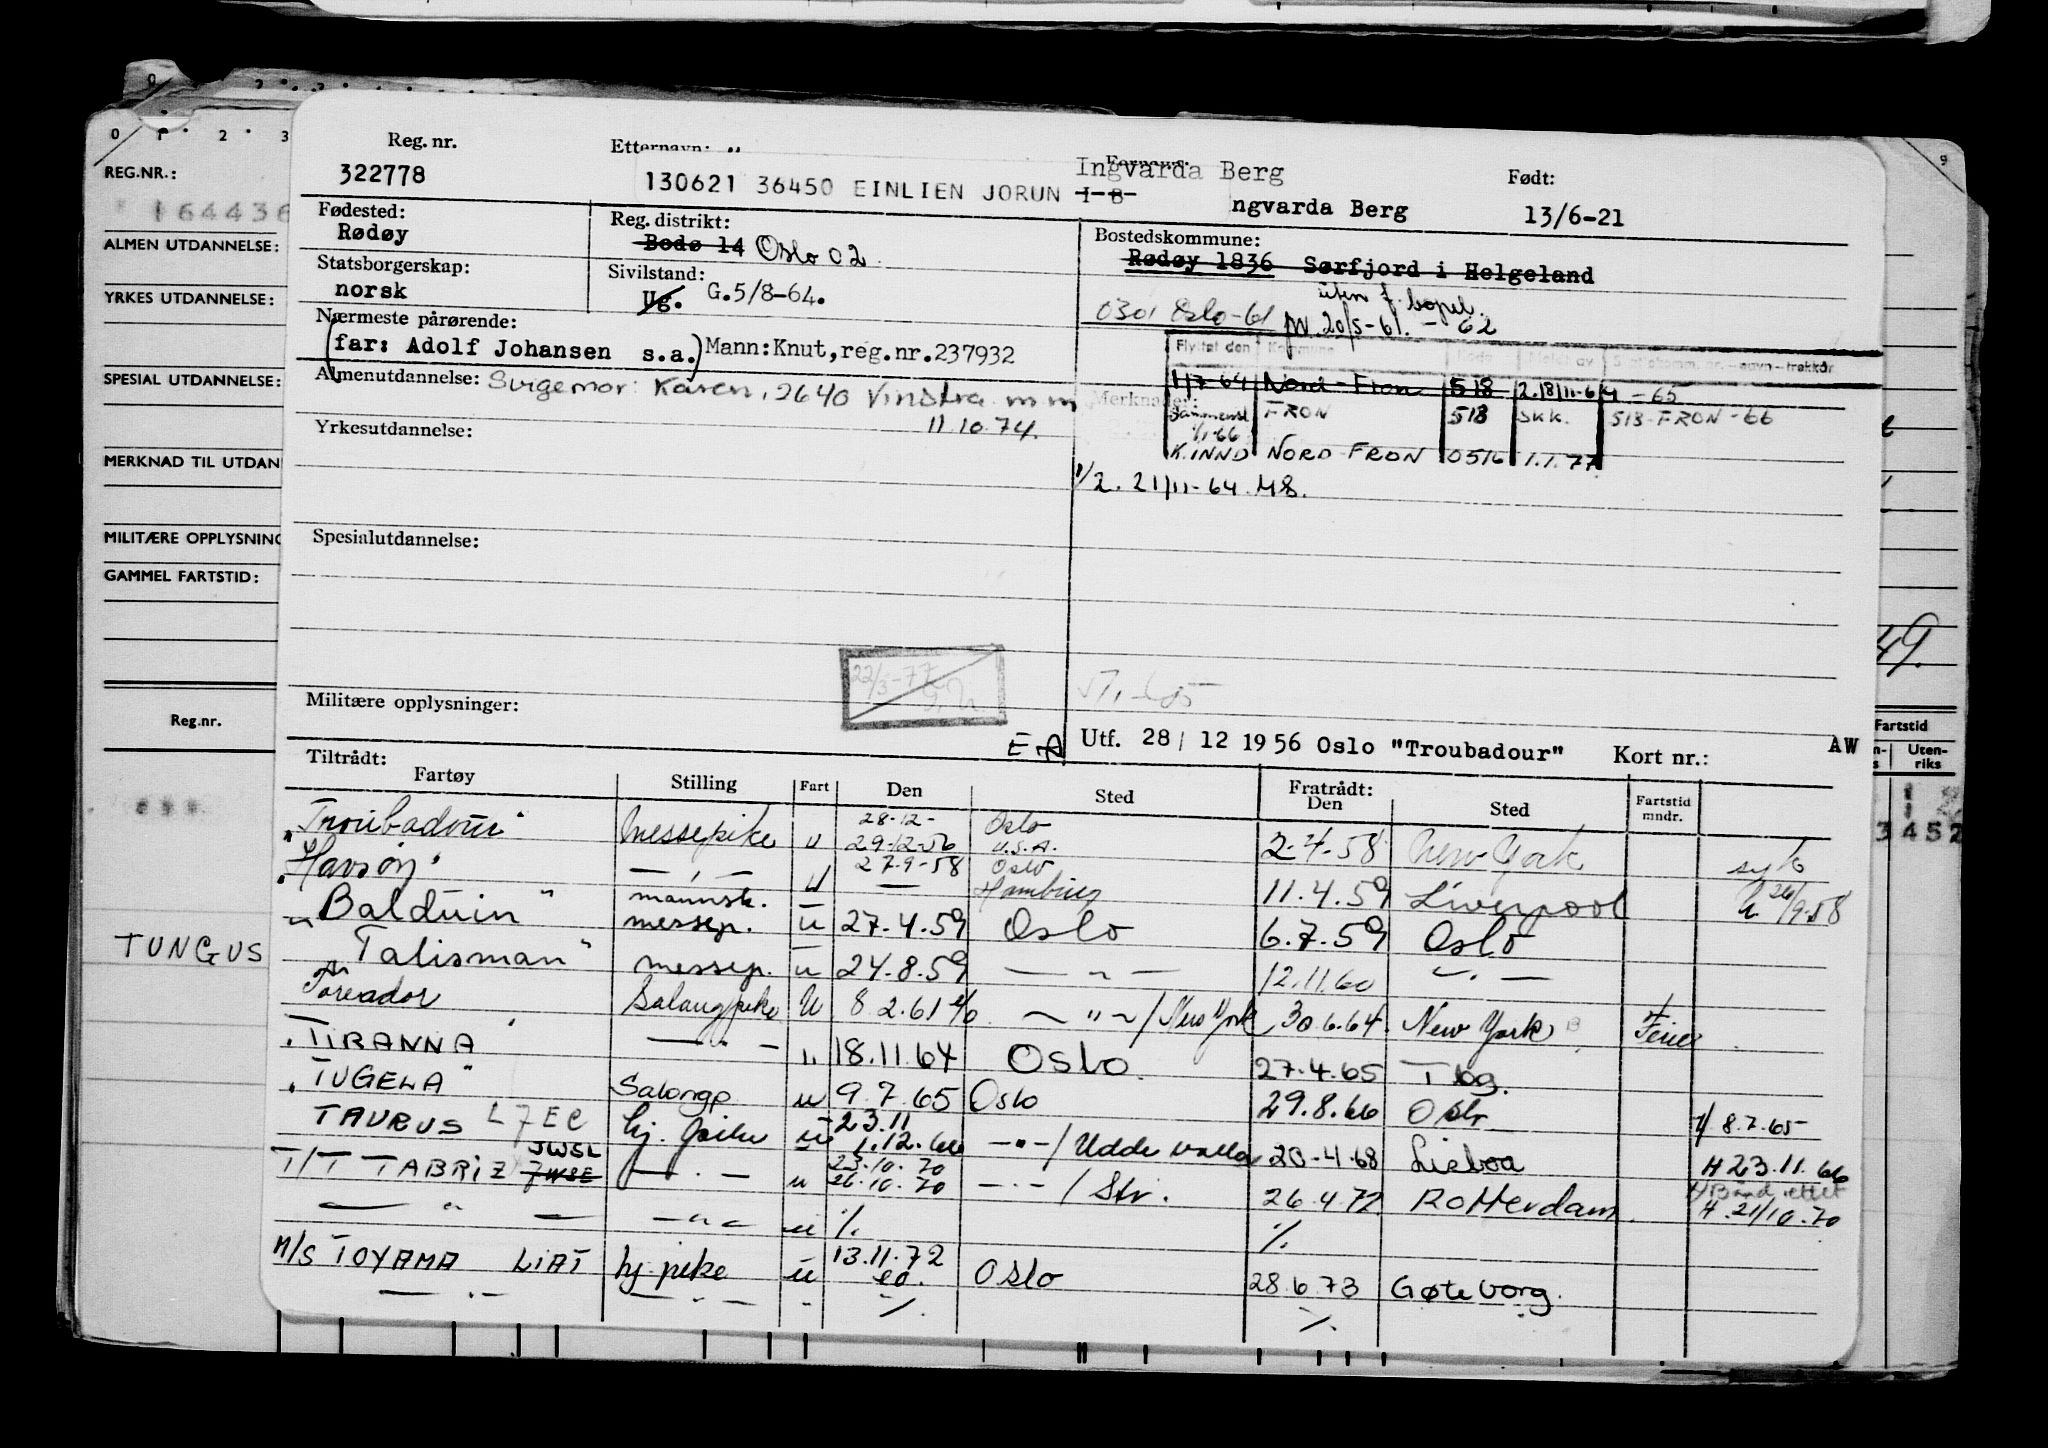 Reg. nr.
322778
Etternavn:
130621 36450 EINLIEN JORUN I B
Ingvarda Berg
ngvarda Berg
Født:
13/6-21
Fødested:
Rødøy
Reg. distrikt:
Bodø 14 Oslo 02
Bostedskommune:
Rødøy 1836 Sørfjord i Helgeland
Statsborgerskap:
norsk
Sivilstand:
Ug. G.5/8-64.
uten f. bopel.
0301 Oslo-61 20/5-61. - 62
Nærmeste pårørende:
(far: Adolf Johansen s.a.) Mann:Knut,reg.nr.237932
Flyttet den Kommune
1/7 64 Nord-Fron 518 2.18/11-64 - 65
Merknader:
Sammensl 1/1-66 FRON 518 SKK. 518-FRON-66
K.INND NORD-FRON 0516 1.1.77
Almenutdannelse: Svigemor: Karen, 2640 Vinstra m m
11.10.74.
Yrkesutdannelse:
1/2. 21/11-64 MS.
Spesialutdannelse:
22/3-77
Militære opplysninger:
E.A
Utf. 28/ 12 1956 Oslo "Troubadour" Kort nr.: AW
Tiltrådt:
Fartøy Stilling Fart Den Sted Fratrådt: Den Sted Fartstid mndr.
"Troubadour" messepike u 28-12- 29-12-56 Oslo U.S.A. 2.4.58 New York syk
"Havsøy" — " — u 27-9-58 Oslo Hamburg 11.4.59 Liverpool 26/9.58
"Balduin" mannsk. messep. u 27.4.59 Oslo 6.7.59 Oslo
"Talisman" messep. u 24.8.59 — " — 12.11.60 — " —
Toreador Salongpike u 8.2.61 — " — / New York 30.6.64. New York Ferie
"TIRANNA" — " — " 18.11.64 Oslo. 27.4.65 Tbg.
"TUGELA" Salongp u 9.7.65 Oslo 29.8.66 Oslo 8.7.65
TAURUS L7EC hj. pike u 23.11 1.12.66 — " — / Uddevalla 20-4-68 Lisboa H 23.11.66
T/T TABRIZ JWSE JWSL — " — u 23.10.70 26.10.70 — " — / Str. 26.4.72 Rotterdam H. 21/10.70
— " — — " — u %. %.
M/S TOYAMA LIAT hj.pike u 13.11.72 Oslo 28.6.73 Gøteborg.
— " — — " — " %. %.
0 1 2 3
REG.NR.:
164436
ALMEN UTDANNELSE:
YRKES UTDANNELSE:
SPESIAL UTDANNELSE:
MERKNAD TIL UTDAN
MILITÆRE OPPLYSNING
GAMMEL FARTSTID:
Reg.nr.
TUNGUS
9
49.
Fartstid
Uten-
riks
3 4 5 2